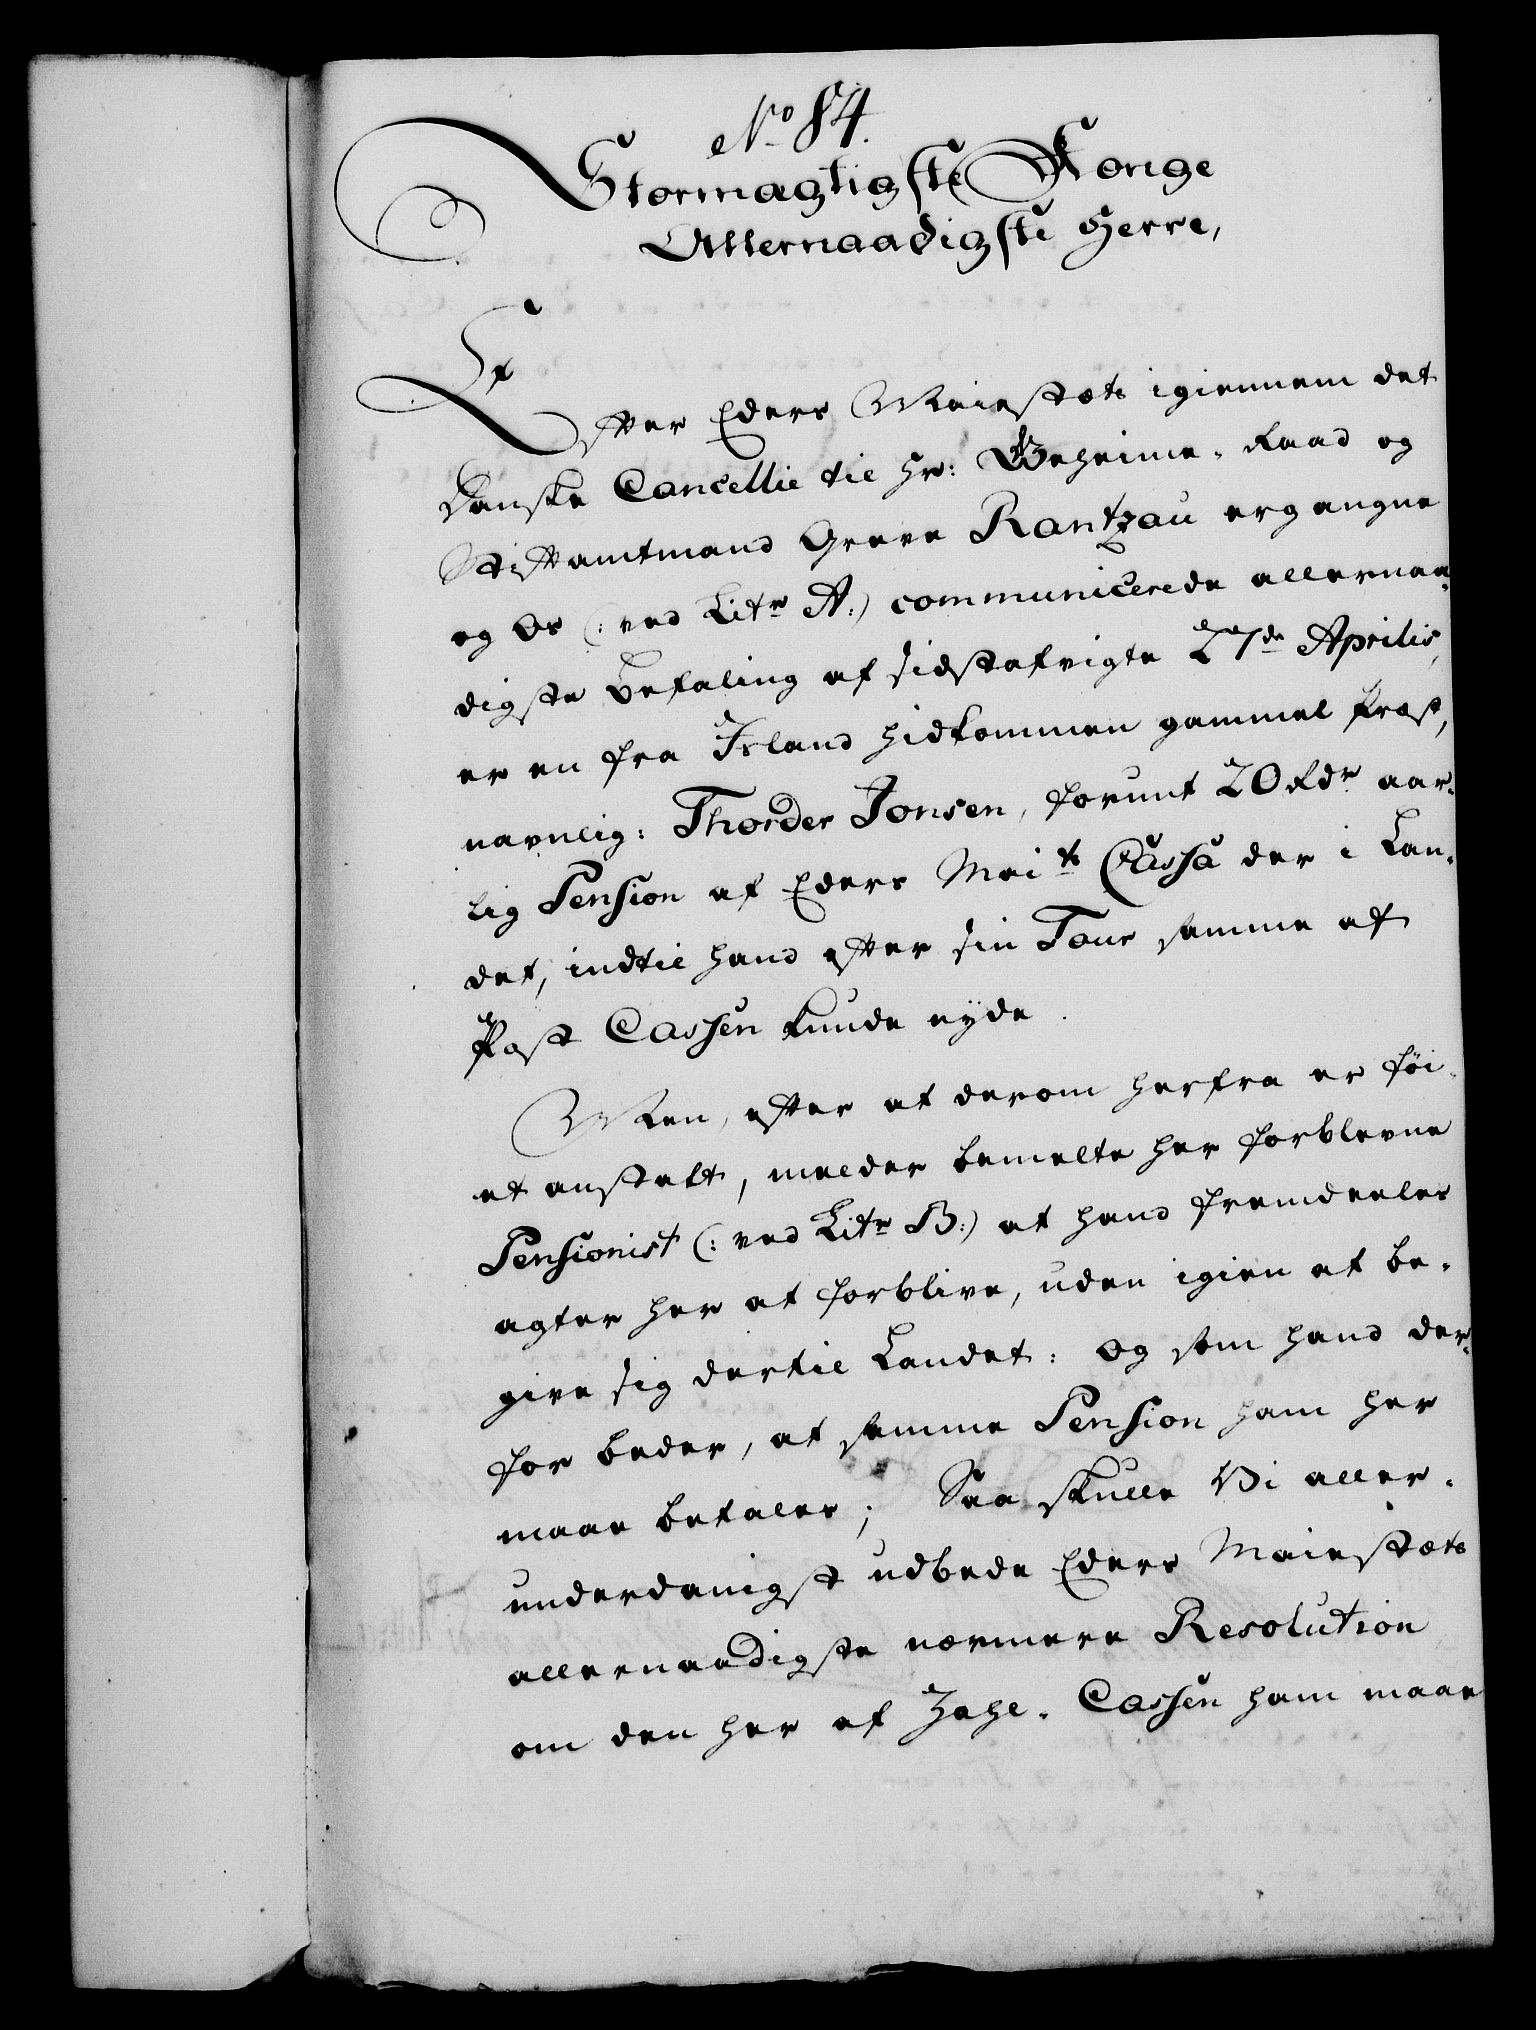 No 84.
Stormægtigste Konge
Allernaadigste Herre,
Efter Eders Maiestæts igiennem det
Danske Cancellie til Hr: Geheime-Raad og
Stiftamtmand Greve Rantzau ergangne
og Os (: ved Litr A:) communicerede allernaa-
digste Befaling af sidstafvigte 27de Aprilis,
er en fra Island hidkommen gammel Præst,
navnlig: Thorder Jonsen, forunt 20 Rdr aar-
lig Pension af Eders Mai:ts Cassa der i Lan-
det, indtil hand efter sin Tour samme af
Post Cassen kunde nyde.
Men, efter at derom herfra er föi-
et anstalt, melder bemelte her forblevne
Pensionist (: ved Litr B:) at hand fremdeeles
agter her at forblive, uden igien at be-
give sig dertil Landet: og som hand der-
for beder, at samme Pension ham her
maae betales; Saa skulle Vi aller-
underdanigst udbede Eders Maiestæts
allernaadigste nærmere Resolution
om den her af Zahl-Cassen ham maae